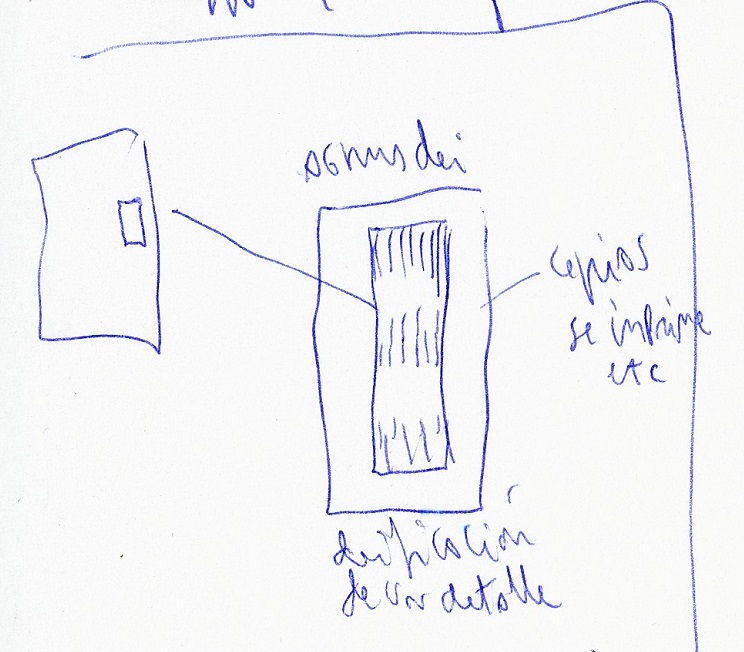 agnus dei
copias
se imprime
etc
deificación
de un detalle